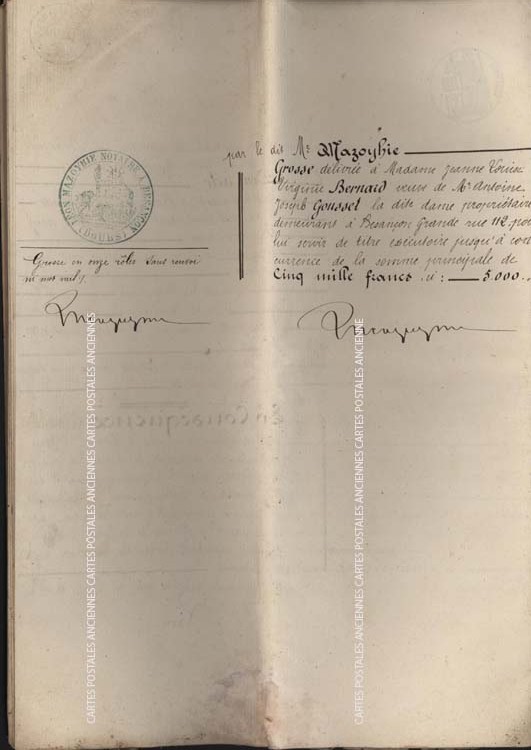 par le dit Me Mazoyhie
Grosse délivrée à Madame Jeanne Louise
Virginie Bernard veuve de Mr Antoine
Joseph Gousset la dite dame propriétaire
demeurant à Besançon Grande rue 112 pour
lui servir de titre exécutoire jusqu'à con
currence de la somme principale de
Cinq mille francs ci : 5.000
MAZOYHIE NOTAIRE A BESANÇON
(DOUBS)
Grosse en onze rôles sans renvoi
ni mot nul
CARTES POSTALES ANCIENNES CARTES POSTALES ANCIENNES CARTES POSTALES ANCIENNES
CARTES POSTALES ANCIENNES CARTES POSTALES ANCIENNES CARTES POSTALES ANCIENNES